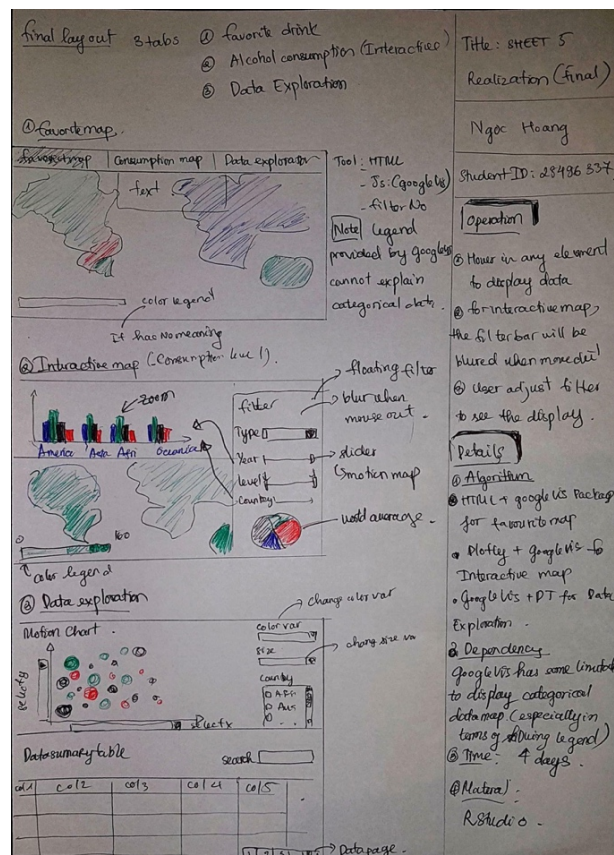 final layout 3 tabs ① favorite drink
② Alcohol consumption (Interactive)
③ Data Exploration
① favorite map.
favorite map Consumption map Data exploration
text
color legend
It has No meaning
Tool: HTML
- Js: (googleVis)
- filter No
Note legend
provided by googleVis
cannot explain
categorical data.
② Interactive map (Consumption level).
zoom
America Asia Afri Oceania
filter
Type
Year
level
Country
floating filter
blur when
mouse out.
slider
motion map
world average.
0 160
color legend
③ Data exploration
Motion Chart.
select y
select x
color var
change color var
size
chang size var
country
Afri
Aus
Data summary table search
col1 col2 col3 col4 col5
Data page.
Title: SHEET 5
Realization (final)
Ngoc Hoang
Student ID: 28496337
Operation
Hover in any element
to display data
for interactive map,
the filter bar will be
blured when move out
User adjust filter
to see the display.
Details
① Algorithm
HTML + googleVis Package
for favourite map
Plotly + googleVis
Interactive map
GoogleVis + DT for Data
Exploration.
② Dependency
GoogleVis has some limitat
to display categorical
data map (especially in
terms of legend)
③ Time: 4 days.
④ Material.
RStudio.